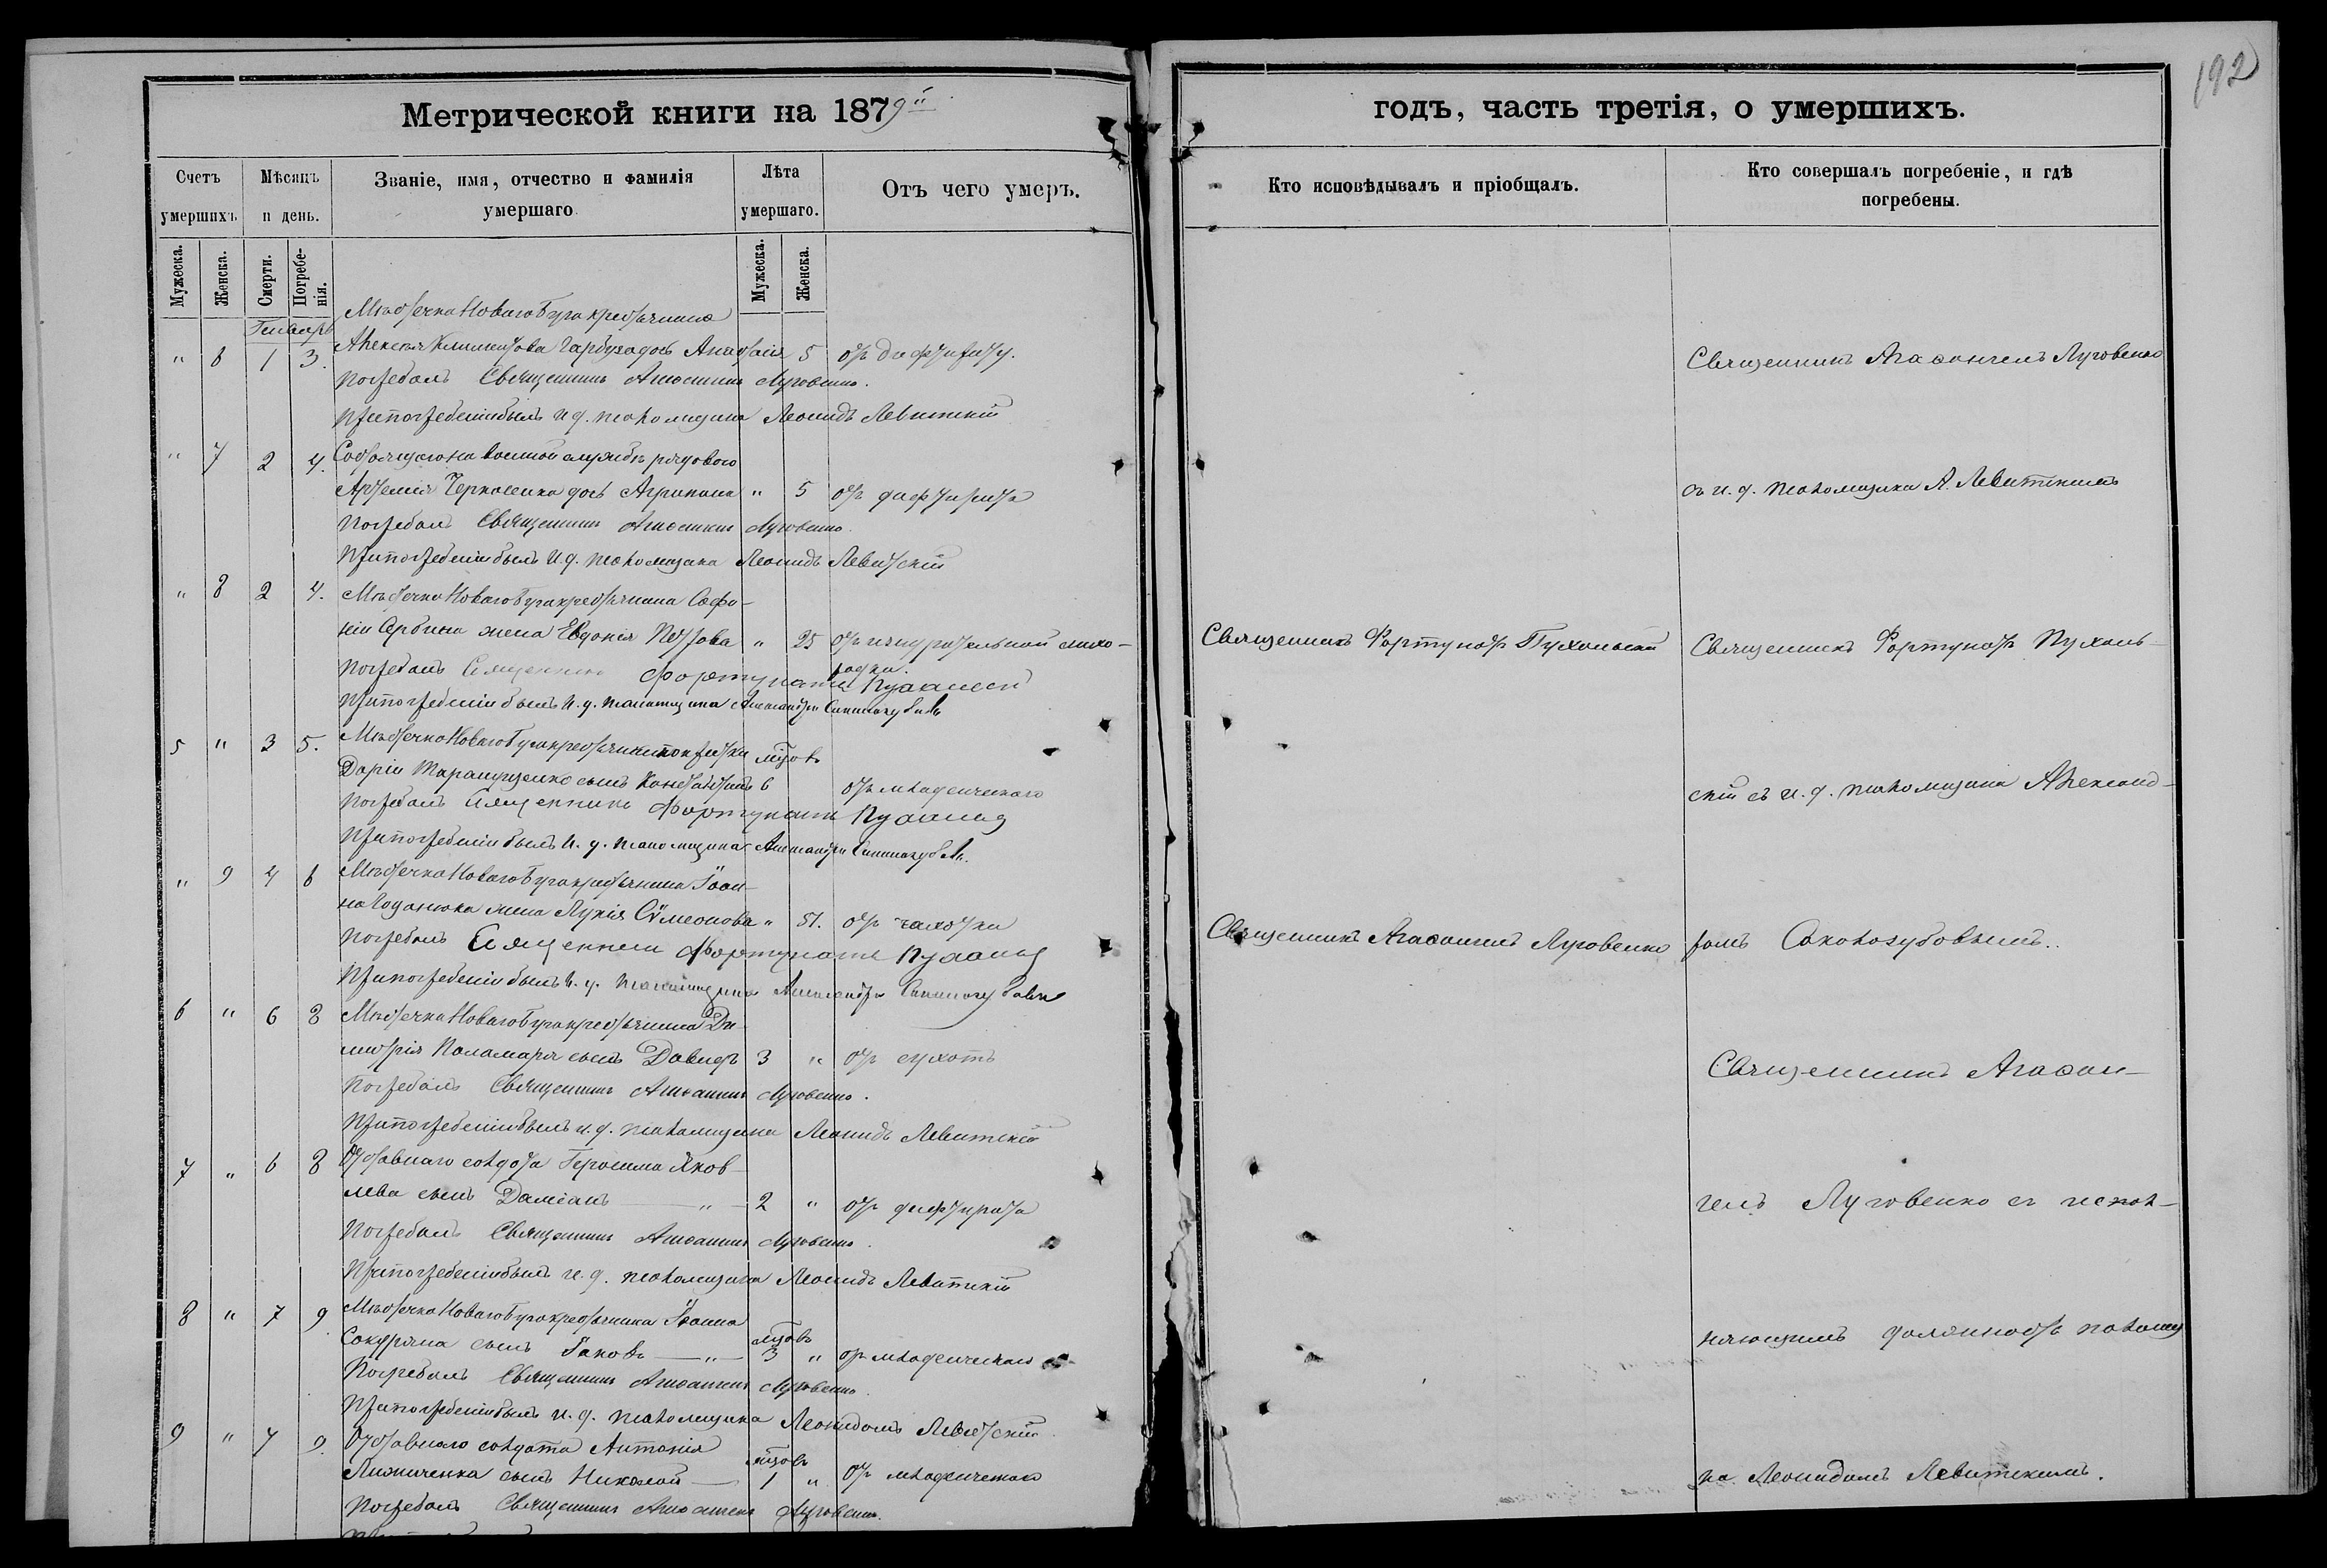 192
Метрической книги на 1879й
годъ, часть третія, о умершихъ.
Счетъ умершихъ
Мѣсяцъ и день.
Званіе, имя, отчество и фамилія умершаго
Лѣта умершаго.
Отъ чего умеръ.
Кто исповѣдывалъ и пріобщалъ.
Кто совершалъ погребеніе, и гдѣ погребены.
Мужеска.
Женска.
Смерти.
Погребенія.
Мужеска.
Женска.
Генварь
Мѣстечка Новаго Буга крестьянина
" 6 1 3. Алексѣя Гарбуза дочь Анастасія 5 отъ дифтерита. Священникъ Агаѳангелъ Луговенко
Погребалъ Священникъ Агаѳангелъ Луговенко.
При погребеніи былъ и. д. псаломщика Леонидъ Левитскій
" 7 2 4. Состоящаго на военной службѣ рядового
Артемія дочь Агрипина " 5 отъ дифтерита съ и. д. псаломщика Л. Левитскимъ
Погребалъ Священникъ Агаѳангелъ Луговенко.
При погребеніи былъ и. д. псаломщика Леонидъ Левитскій
" 8 2 4. Мѣстечка Новаго Буга крестьянина Софо-
нія Сербина жена Евдокія Петрова " 25 отъ изнурительной лихо- Священникъ Фортунатъ Пухальскій Священникъ Фортунатъ Пухаль-
радки.
Погребалъ Священникъ Фортунатъ Пухальскій
При погребеніи былъ и. д. псаломщика Александръ
5 " 3 5. Мѣстечка Новаго Буга крестьянки
Даріи сынъ Константинъ мѣсяцовъ 6 отъ младенческаго скій съ и. д. псаломщика Александ-
Погребалъ Священникъ Фортунатъ Пухальскій
При погребеніи былъ и. д. псаломщика Александръ
" 9 4 6 Мѣстечка Новаго Буга крестьянина Іоан-
на жена Лукія Сѵмеонова " 51. отъ чахотки Священникъ Агаѳангелъ Луговенко ромъ Сокологубовымъ..
Погребалъ Священникъ Фортунатъ Пухальскій
При погребеніи былъ и. д. псаломщика Александръ
6 " 6 8 Мѣстечка Новаго Буга крестьянина Ди-
митрія Паламаря сынъ Давидъ 3 " отъ сухотъ Священникъ Агаѳан-
Погребалъ Священникъ Агаѳангелъ Луговенко.
При погребеніи былъ и. д. псаломщика Леонидъ Левитскій
7 " 6 8 Отставнаго солдата Герасима Яков-
лева сынъ Даміанъ — " — 2 " отъ дифтирита гелъ Луговенко съ испол-
Погребалъ Священникъ Агаѳангелъ Луговенко.
При погребеніи былъ и. д. псаломщика Леонидъ Левитскій
8 " 7 9 Мѣстечка Новаго Буга крестьянина Іоанна
сынъ Іаковъ — " — мѣсяцовъ 3 " отъ младенческаго няющимъ должность псаломщ
Погребалъ Священникъ Агаѳангелъ Луговенко.
При погребеніи былъ и. д. псаломщика Леонидомъ Левитскій
9 " 7 9. Отставнаго солдата Антонія
сынъ Николай — мѣсяцовъ 1 " отъ младенческаго ка Леонидомъ Левитскимъ.
Погребалъ Священникъ Агаѳангелъ Луговенко.